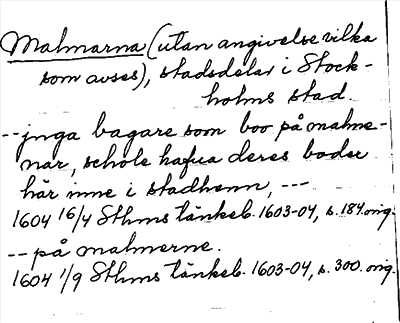 Malmarna (utan angivelse vilka
som avses), stadsdelar i Stock-
holms stad.
--jnga bagare som boo på malme-
nar, schole hafua deres boder
här inne i stadhenn, ---
1604 16/4 Sthms tänkeb. 1603-04, s. 184. orig.
--på malmerne.
1604 1/9 Sthms tänkeb. 1603-04, s. 300. orig.